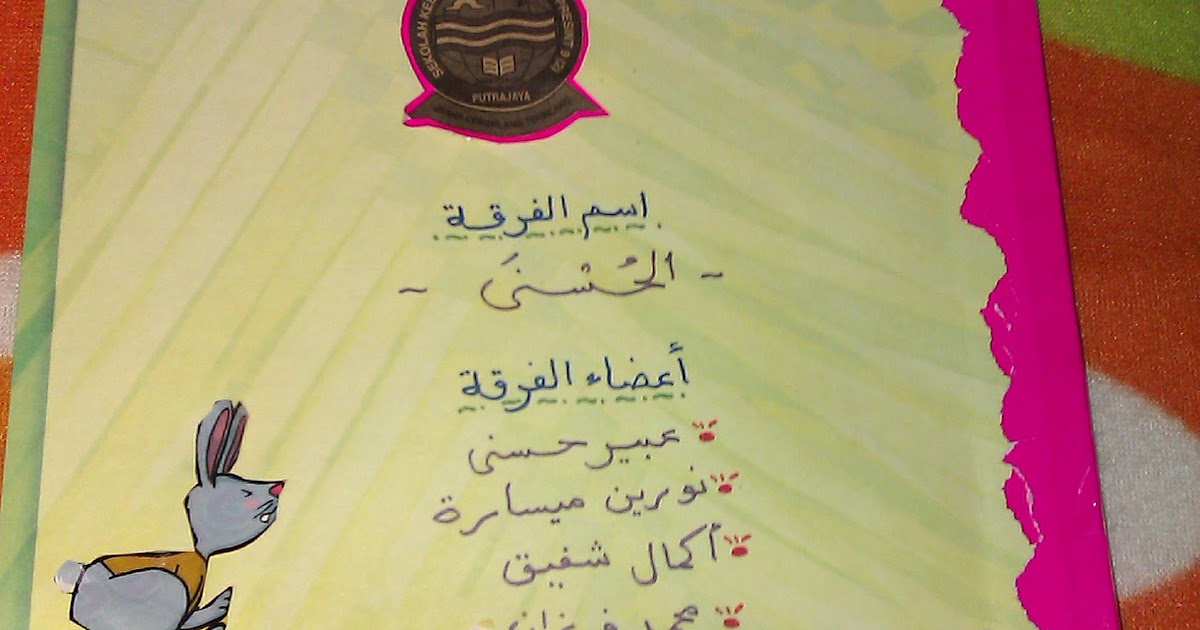 SEKOLAH KE PRESINT 9 (2)
PUTRAJAYA
اسم الفرقة
- الحُسْنَى -
أعضاء الفرقة
عبير حسنى
نورين ميسارة
أكمال شفيق
محمد